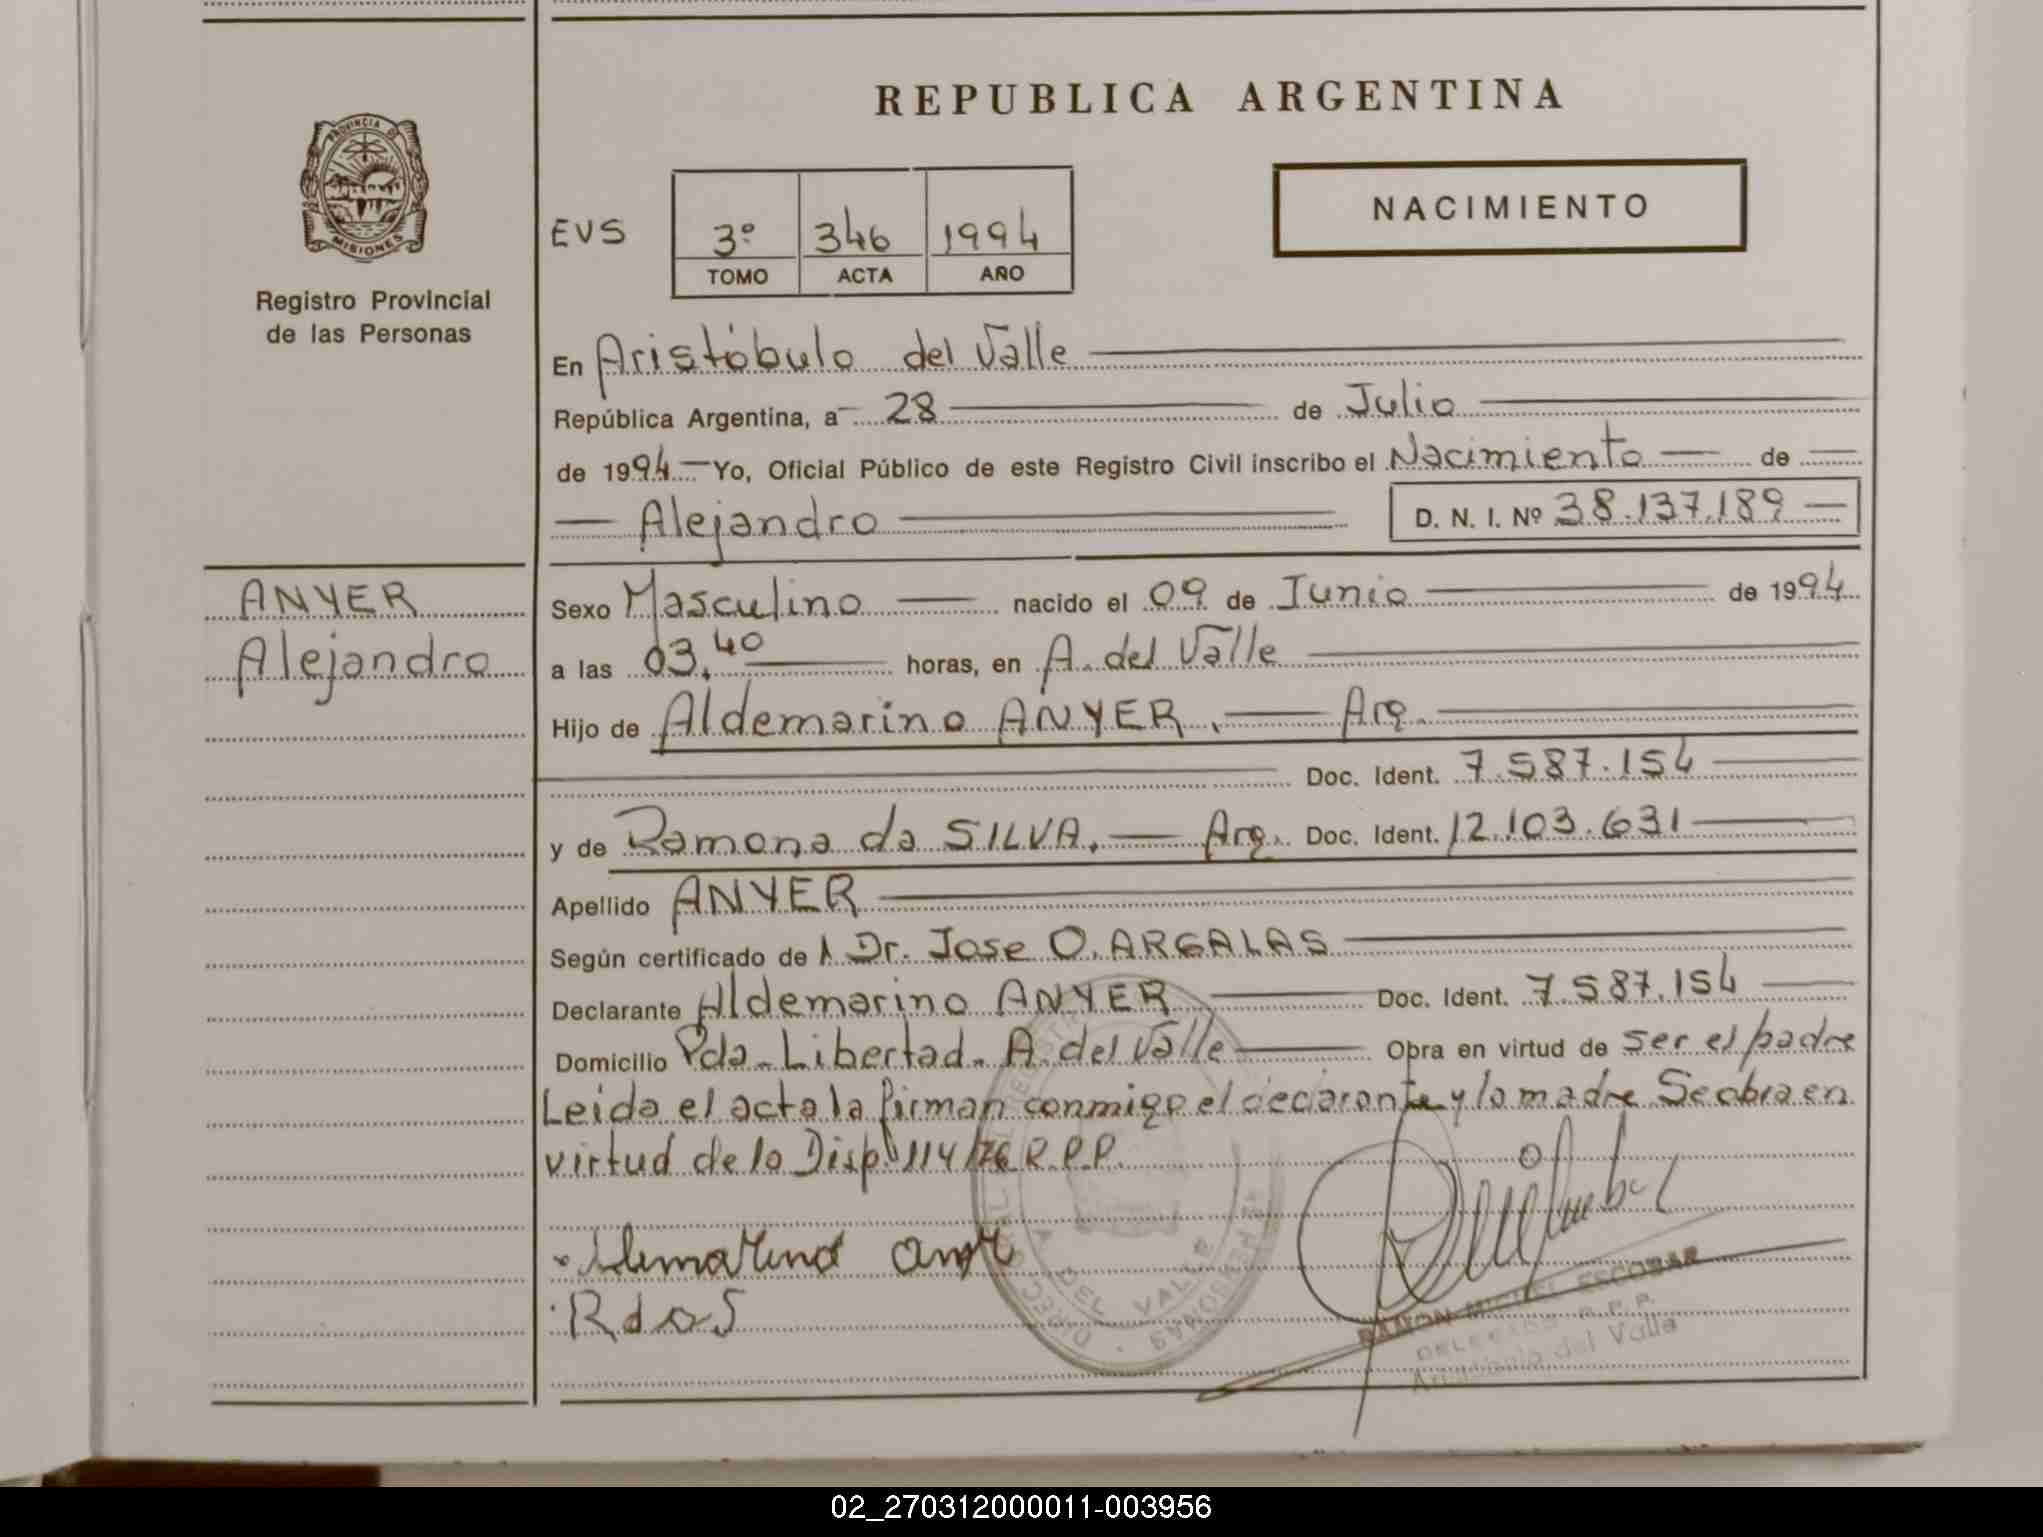 REPUBLICA ARGENTINA
PROVINCIA DE
MISIONES
Registro Provincial
de las Personas
NACIMIENTO
EVS
3º 346 1994
TOMO ACTA AÑO
En Aristóbulo del Valle
República Argentina, a 28 de Julio
de 1994 Yo, Oficial Público de este Registro Civil inscribo el Nacimiento de
Alejandro D. N. I. Nº 38.137.189
ANYER
Alejandro
Sexo Masculino nacido el 09 de Junio de 1994
a las 03.40 horas, en A. del Valle
Hijo de Aldemarino ANYER. Arg.
Doc. Ident. 7.587.154
y de Ramona da SILVA. Arg. Doc. Ident. 12.103.631
Apellido ANYER
Según certificado de Dr. Jose O. ARGALAS
Declarante Aldemarino ANYER Doc. Ident. 7.587.154
Domicilio Pda. Libertad. A. del Valle Obra en virtud de ser el padre
Leida el acta la firman conmigo el declarante y la madre Se obra en
virtud de la Disp. 114/76 R.P.P.
RdaS
A DEL VALLE
RAMON MIGUEL ESCOBAR
DELEGADO R.P.P.
Aristóbulo del Valle
02_270312000011-003956